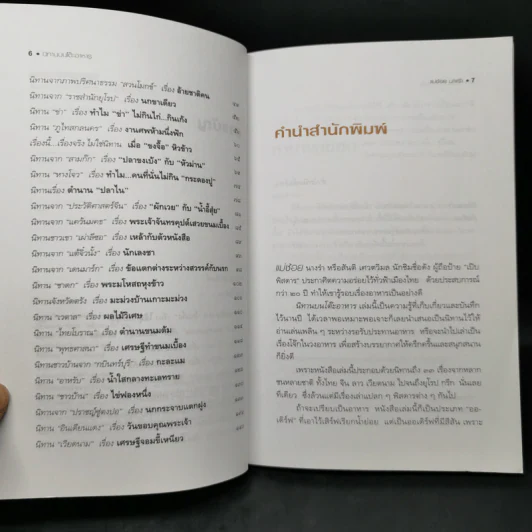 6 • นิทานบนโต๊ะอาหาร
นิทานจากภาพปริศนาธรรม "สวนโมกข์" เรื่อง อ้ายชาติคน
นิทานจาก "ราชสำนักยุโรป" เรื่อง นกขาเดียว
นิทาน "ข่า" เรื่อง ทำไม "ข่า" ไม่กินไก่...กินเก้ง
นิทาน "ภูไทสกลนคร" เรื่อง งานศพห้ามนึ่งฟัก
เรื่องนี้...เรื่องจริง ไม่ใช่นิทาน เมื่อ "ขงจื้อ" หิวข้าว
นิทานจาก "สามก๊ก" "ปลาขงเบ้ง" กับ "หัวม่าน"
นิทาน "ทางโจว" เรื่อง ทำไม...คนที่นั่นไม่กิน "กระดองปู"
นิทานเรื่อง ตำนาน "ปลาไน"
นิทานจาก "ประวัติศาสตร์จีน" เรื่อง "ผักเวย" กับ "น้ำอี้สุ่ย"
นิทานจาก "แคว้นมคธ" เรื่อง พระเจ้าจันทรคุปต์เสวยขนมเบื้อง
นิทานชาวเขา "เผ่าลีซอ" เรื่อง เหล้ากับตัวหนังสือ
นิทานจาก "แต้จิ๋วนั้ง" เรื่อง นักเลงชา
นิทานจาก "เดนมาร์ก" เรื่อง ข้อแตกต่างระหว่างสวรรค์กับนรก
นิทาน "ชาดก" เรื่อง พระมโหสถหุงข้าว
นิทานจังหวัดตรัง เรื่อง มะม่วงบ้านเกาะมะม่วง
นิทาน "เวตาล" เรื่อง ผลไม้วิเศษ
นิทาน "ไทยโบราณ" เรื่อง ตำนานขนมต้ม
นิทาน "พุทธศาสนา" เรื่อง เศรษฐีทำขนมเบื้อง
นิทานชาวบ้านจาก "กบินทร์บุรี" เรื่อง กะละแม
นิทาน "อาหรับ" เรื่อง น้ำใสกลางทะเลทราย
นิทาน "ชาวบ้าน" เรื่อง ไข่ฟองหนึ่ง
นิทานจาก "ปราชญ์ผู้ชูดงปอ" เรื่อง นกกระจาบแตกฝูง
นิทาน "อินเดียนแดง" เรื่อง วันขอบคุณพระเจ้า
นิทาน "เวียดนาม" เรื่อง เศรษฐีจอมขี้เหนียว
แม่ช้อย นางรำ • 7
คำนำสำนักพิมพ์
แม่ช้อย นางรำ หรือสันติ เศวตวิมล นักชิมชื่อดัง ผู้ถือป้าย "เปิบ
พิสดาร" ประกาศติดความอร่อยไว้ทั่วฟ้าเมืองไทย ด้วยประสบการณ์
กว่า ๒๐ ปี ทำให้เขารู้รอบเรื่องอาหารเป็นอย่างดี
นิทานบนโต๊ะอาหาร เล่มนี้เป็นความรู้ที่เก็บเกี่ยวและบันทึก
ไว้นานปี ได้เวลาพอเหมาะพอเจาะก็เลยนำเสนอเป็นนิทานไว้ให้
อ่านเล่นเพลิน ๆ ระหว่างรอรับประทานอาหาร หรือจะนำไปเล่าเป็น
เรื่องโจ๊กในวงอาหาร เพื่อสร้างบรรยากาศให้ครึกครื้นและสนุกสนาน
ก็ยิ่งดี
เพราะหนังสือเล่มนี้ประกอบด้วยนิทานถึง ๓๓ เรื่องจากหลาก
ชนหลายชาติ ทั้งไทย จีน ลาว เวียดนาม ไปจนถึงยุโรป กรีก นั่นเลย
ทีเดียว ซึ่งล้วนแต่มีเรื่องเล่าแปลก ๆ พิสดารต่าง ๆ กันไป
ถ้าจะเปรียบเป็นอาหาร หนังสือเล่มนี้ก็เป็นประเภท "ออ-
เดิร์ฟ" ที่เอาไว้เสิร์ฟเรียกน้ำย่อย แต่เป็นออเดิร์ฟที่มีสีสัน เพราะ